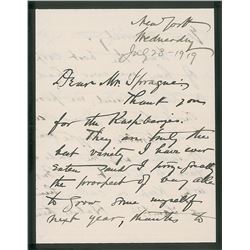 New York
Wednesday
July 23-1919
Dear Mr. Sprague:
Thank you
for the Raspberries.
They are truly the
best variety I have ever
eaten and I enjoy greatly
the prospect of being able
to grow some myself
next year, thanks to